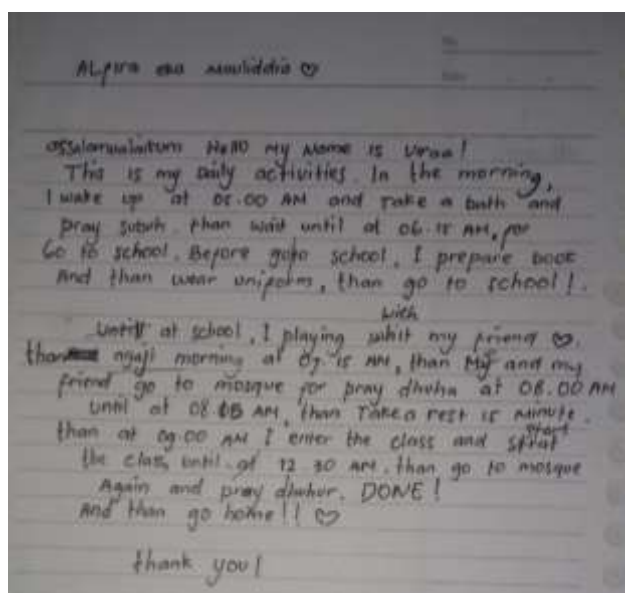 ALpira eka mauliddia
assalamualaikum Hello My Name is Viraa!
This is my Daily activities. In the morning,
I wake up at 05.00 AM and Take a bath and
pray subuh. than wait until at 06.15 AM, for
Go to school. Before goto school, I prepare book
And than wear uniform, than go to school!.
with
Until at school, I playing whit my friend
than ngaji morning at 07.15 AM, than My and my
friend go to mosque for pray dhuha at 08.00 AM
until at 08.15 AM, than Take a rest 15 minute.
start
than at 09.00 AM I enter the class and strat
the class, until at 12 30 AM. than go to mosque
Again and pray dhuhur. DONE!
And than go home!!
thank you!